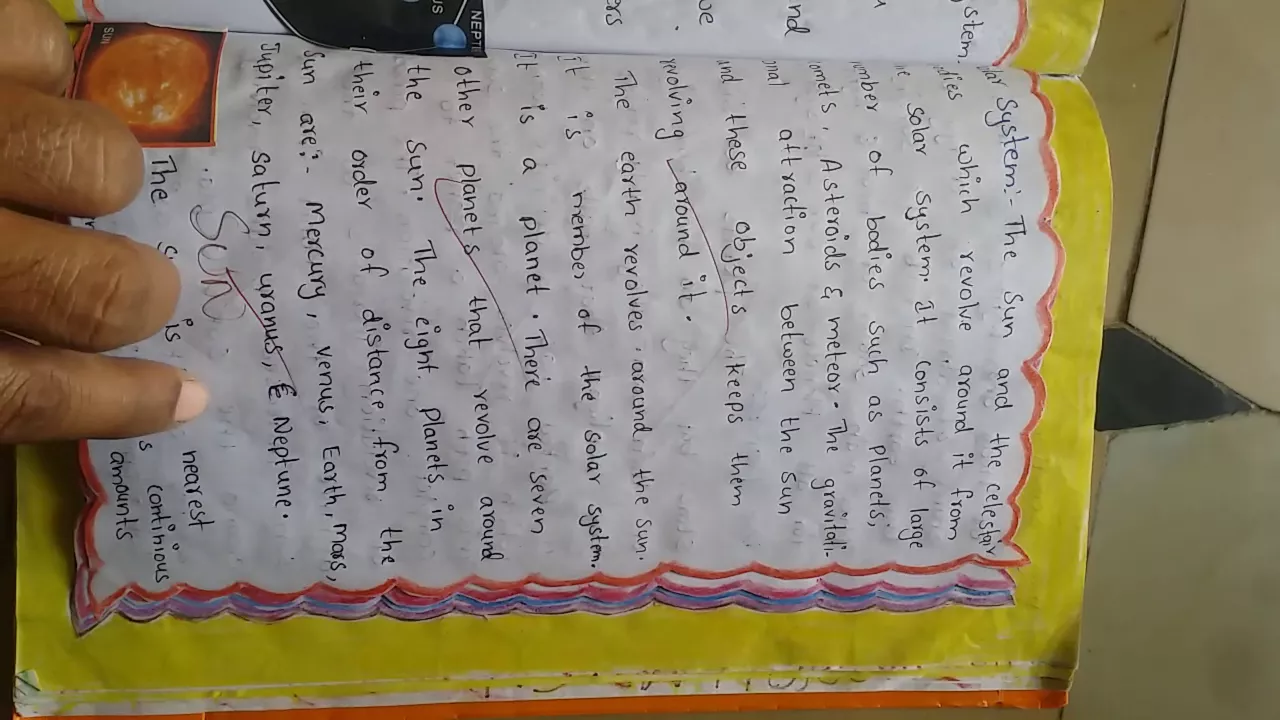 System:- The Sun and the celestial
which revolve around it from
solar system. It consists of large
number of bodies such as planets,
comets, Asteroids & meteor. The gravitati-
onal attraction between the sun
and these objects keeps them
revolving around it.
The earth revolves around the sun.
it is member of the solar system.
It is a planet. There are seven
other planets that revolve around
the sun. The eight planets in
their order of distance from the
sun are:- Mercury, venus, Earth, mars,
Jupiter, saturn, uranus, & Neptune.
Sun
SUN
The is nearest
continious
amounts
stem.
and
we
ers
NEPT
US